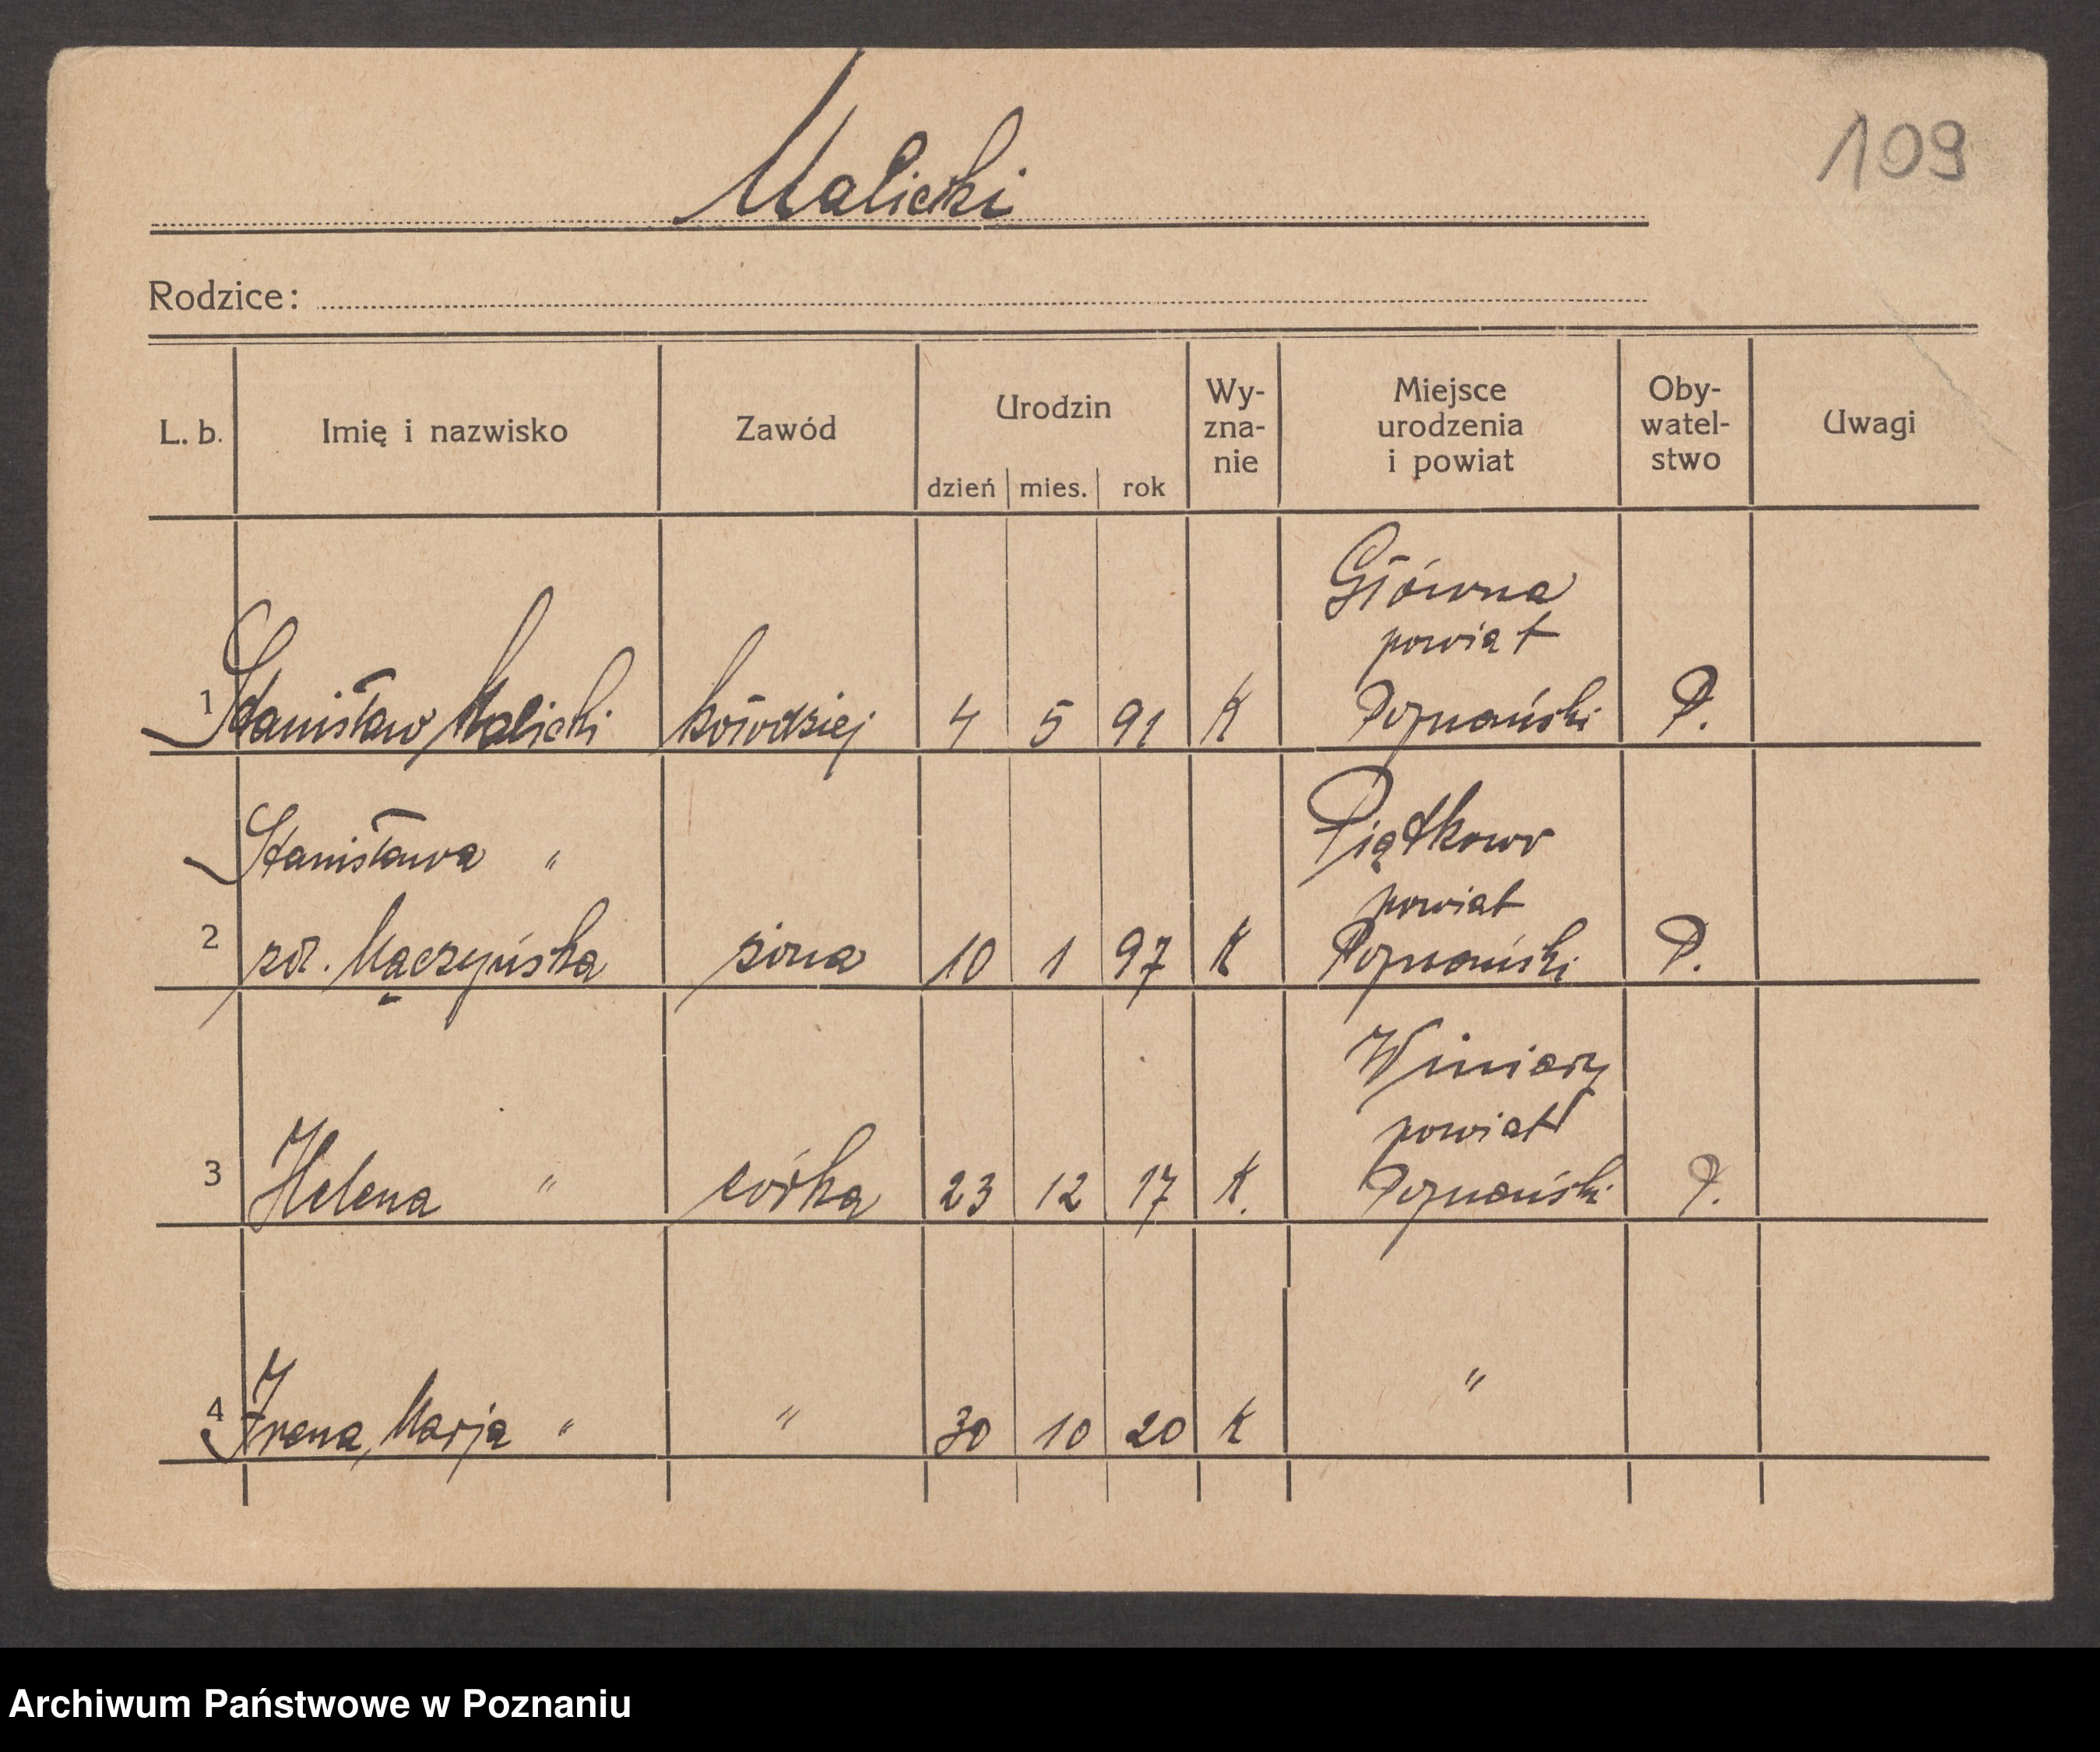 Malicki
109
Rodzice:
L. b. Imię i nazwisko Zawód Urodzin dzień mies. rok Wy-zna-nie Miejsce urodzenia i powiat Oby-watel-stwo Uwagi
Główna
powiat
1 Stanisław Malicki kołodziej 4 5 91 K Poznański P.
Stanisława " Piątkowo
powiat
2 zd. Mączyńska żona 10 1 97 K Poznański P.
Winiary
powiat
3 Helena " córka 23 12 17 K. Poznański P.
4 Irena, Marja " " 30 10 20 K "
Archiwum Państwowe w Poznaniu